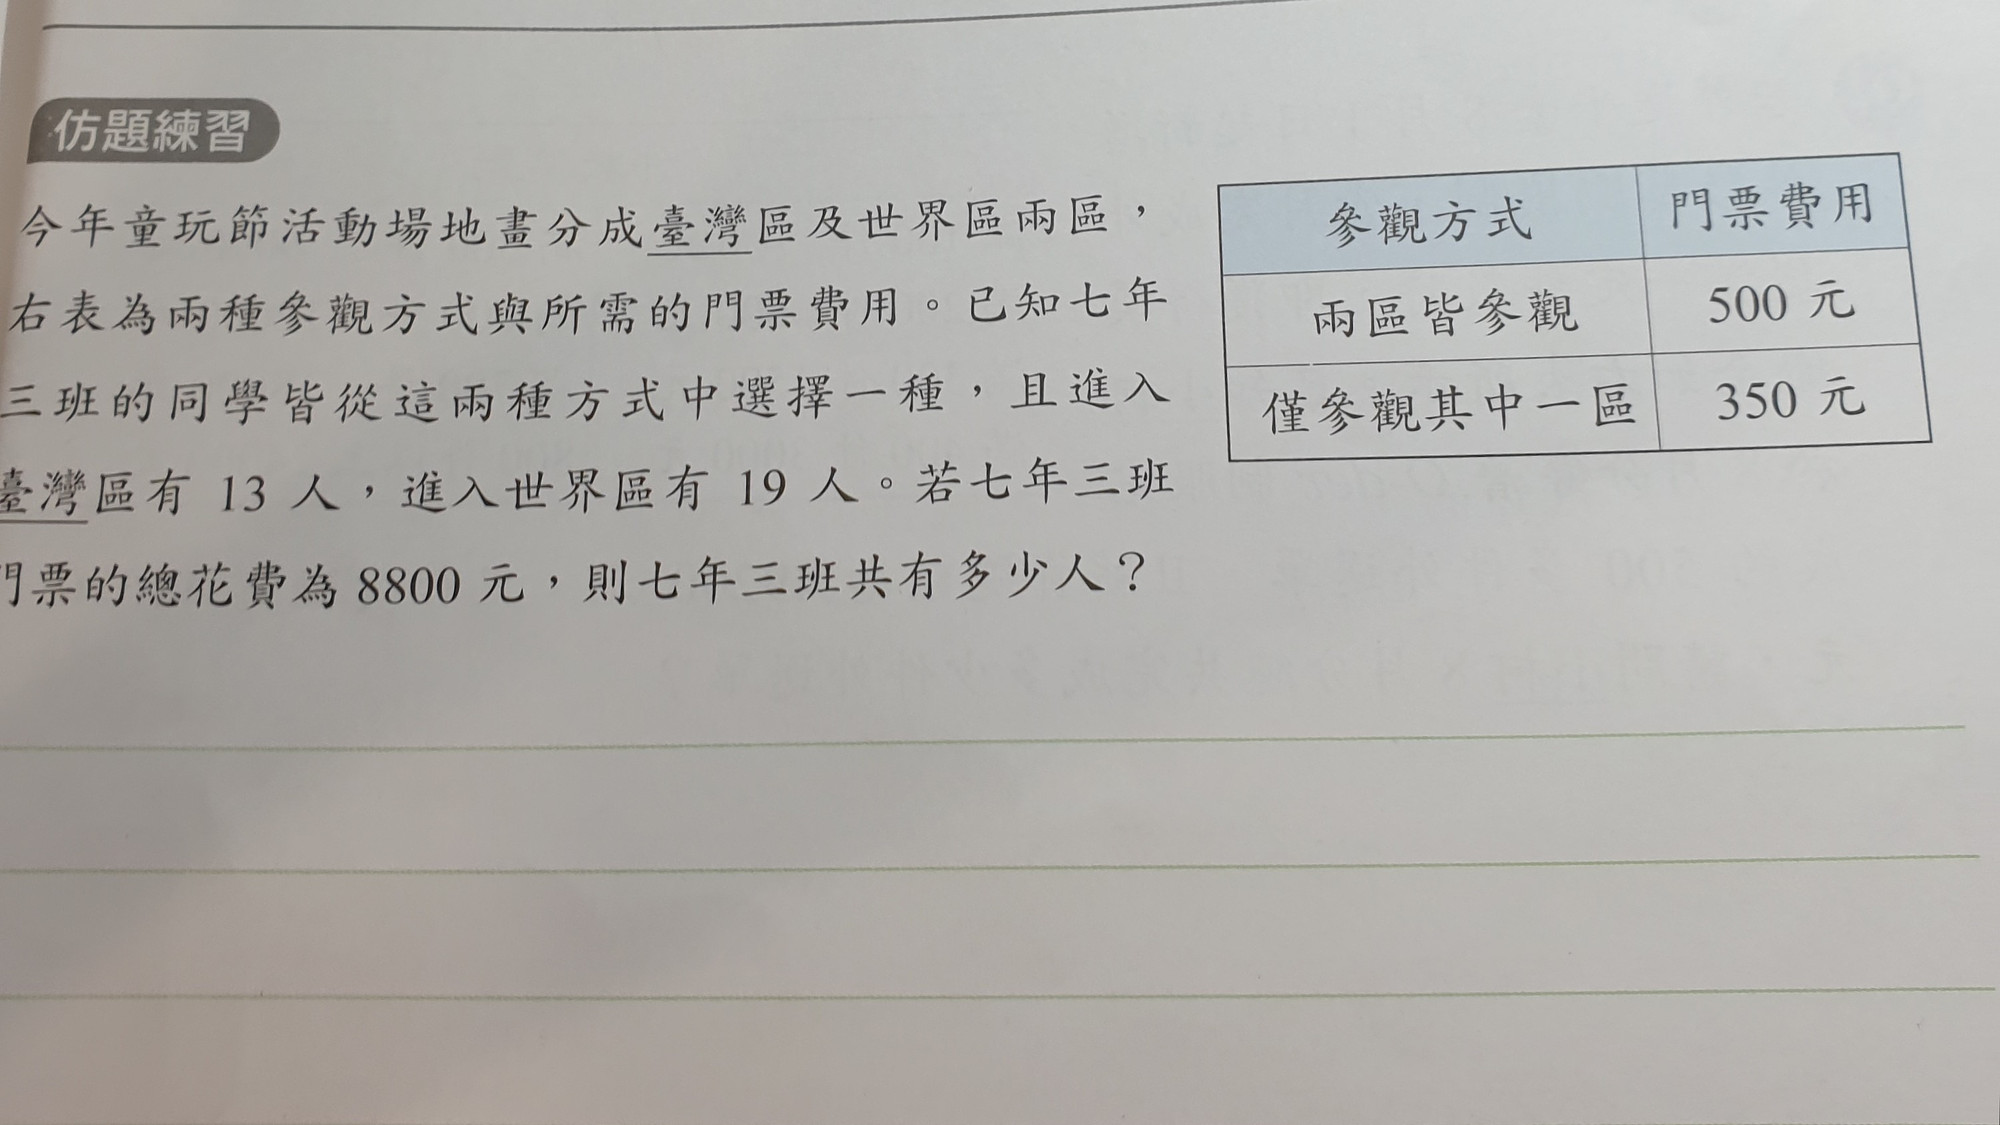 仿題練習
今年童玩節活動場地畫分成臺灣區及世界區兩區，
右表為兩種參觀方式與所需的門票費用。已知七年
三班的同學皆從這兩種方式中選擇一種，且進入
臺灣區有 13 人，進入世界區有 19 人。若七年三班
門票的總花費為 8800 元，則七年三班共有多少人？
參觀方式 門票費用
兩區皆參觀 500 元
僅參觀其中一區 350 元